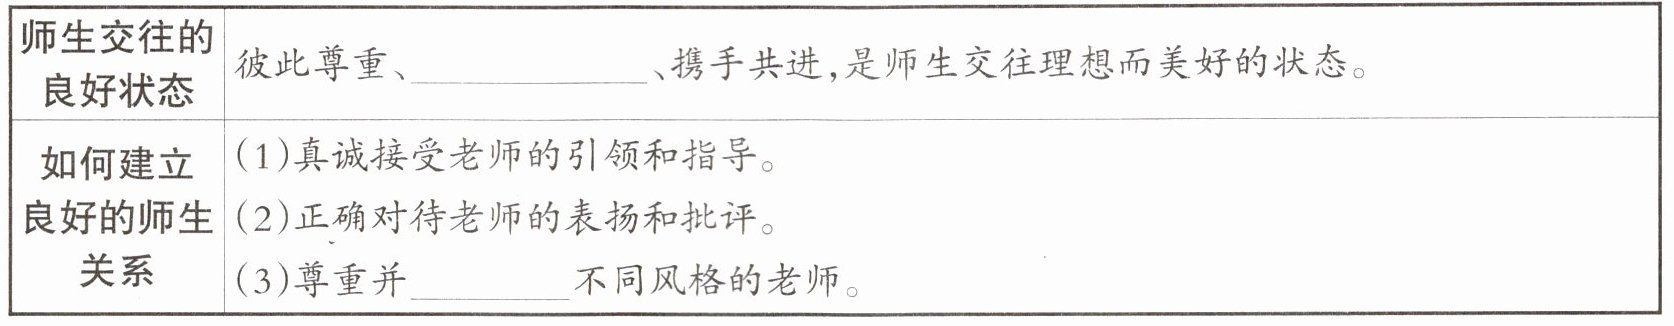 师生交往的
良好状态
彼此尊重、____________、携手共进,是师生交往理想而美好的状态。
如何建立
良好的师生
关系
(1)真诚接受老师的引领和指导。
(2)正确对待老师的表扬和批评。
(3)尊重并________不同风格的老师。